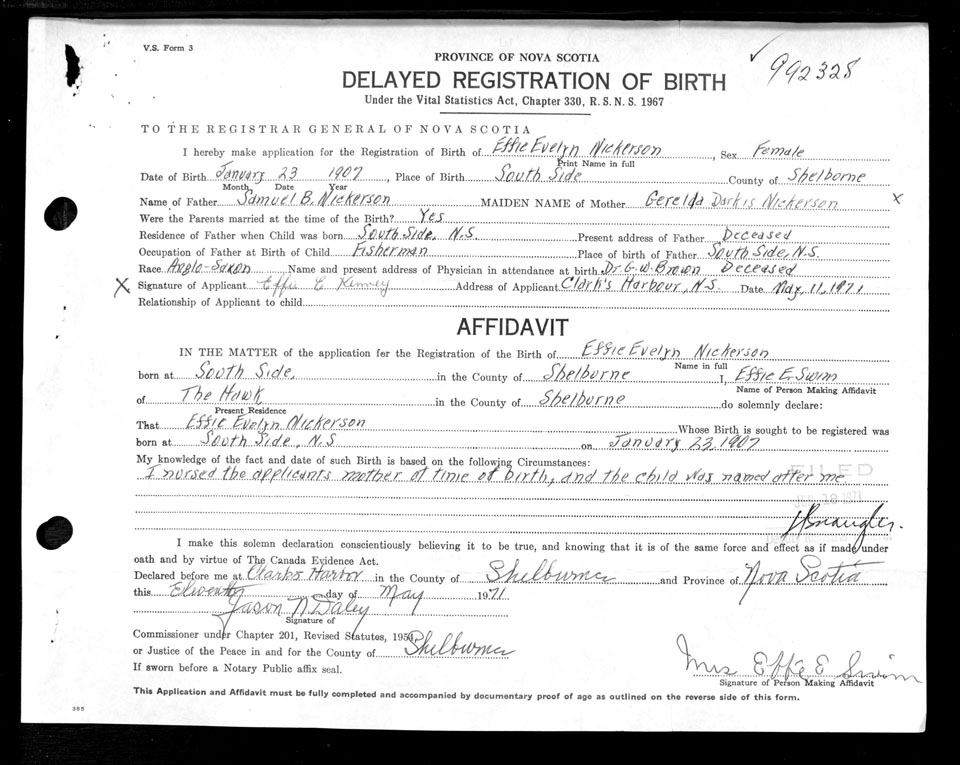 V.S. Form 3
992328
PROVINCE OF NOVA SCOTIA
DELAYED REGISTRATION OF BIRTH
Under the Vital Statistics Act, Chapter 330, R.S.N.S. 1967
TO THE REGISTRAR GENERAL OF NOVA SCOTIA
I hereby make application for the Registration of Birth of Effie Evelyn Nickerson, Sex Female
Print Name in full
Date of Birth January 23 1907, Place of Birth South Side County of Shelborne
Month Date Year
Name of Father Samuel B. Nickerson MAIDEN NAME of Mother Gerelda Darkis Nickerson X
Were the Parents married at the time of the Birth? Yes
Residence of Father when Child was born South Side, N.S. Present address of Father Deceased
Occupation of Father at Birth of Child Fisherman Place of birth of Father South Side, N.S.
Race Anglo-Saxon Name and present address of Physician in attendance at birth Dr. G. W. Brown Deceased
X Signature of Applicant Effie E Kenney Address of Applicant Clark's Harbour, N.S. Date May 11, 1971
Relationship of Applicant to child
AFFIDAVIT
IN THE MATTER of the application for the Registration of the Birth of Effie Evelyn Nickerson
Name in full
born at South Side, in the County of Shelburne I, Effie E. Swim
Name of Person Making Affidavit
of The Hawk in the County of Shelburne do solemnly declare:
Present Residence
That Effie Evelyn Nickerson Whose Birth is sought to be registered was
born at South Side, N.S on January 23, 1907
My knowledge of the fact and date of such Birth is based on the following Circumstances:
I nursed the applicants mother at time of birth, and the child was named after me
FILED
I make this solemn declaration conscientiously believing it to be true, and knowing that it is of the same force and effect as if made under
oath and by virtue of The Canada Evidence Act.
Declared before me at Clarks Harbor in the County of Shelburne and Province of Nova Scotia
this day of May 1971
Jason N Daley
Signature of
Commissioner under Chapter 201, Revised Statutes, 1954,
or Justice of the Peace in and for the County of Shelburne
If sworn before a Notary Public affix seal.
Mrs Effie E Swim
Signature of Person Making Affidavit
This Application and Affidavit must be fully completed and accompanied by documentary proof of age as outlined on the reverse side of this form.
365